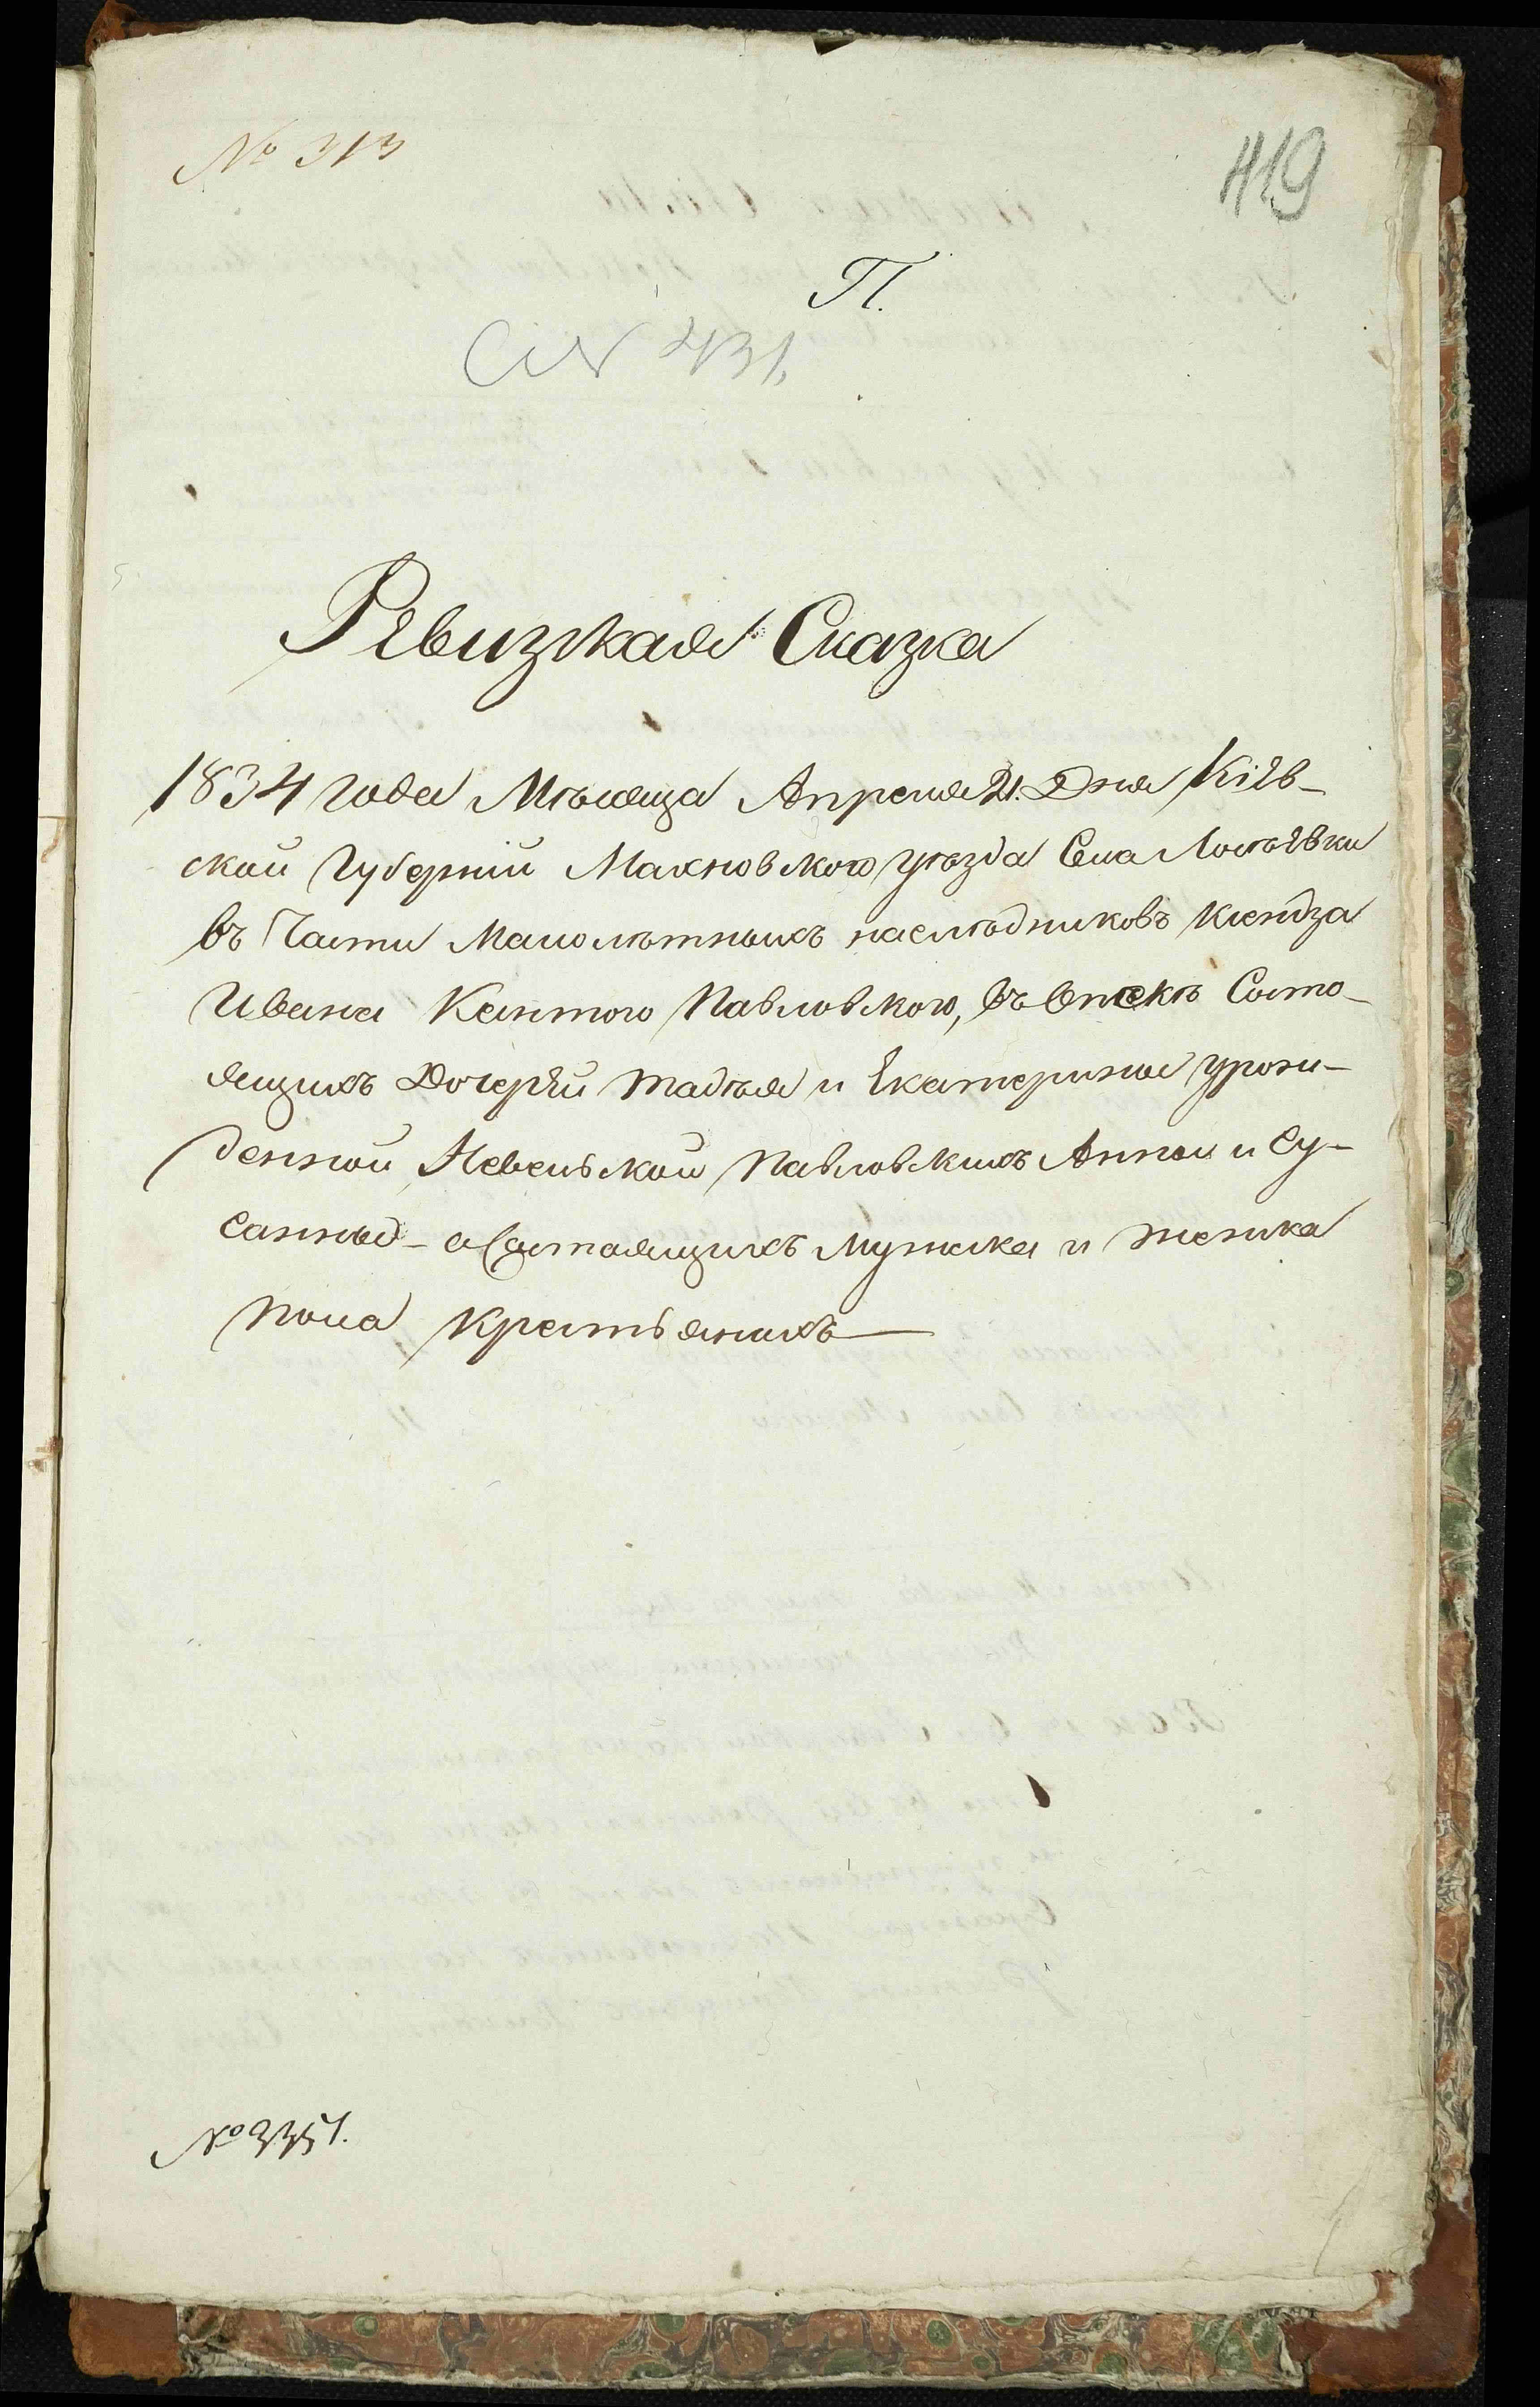 № 313
419
П.
431
Ревизская Сказка
1834 года Мѣсяца Апреля 21. Дня Кіев-
ской Губерніи Махновского уѣзда Села
въ Части Малолѣтныхъ наслѣдниковъ Ксендза
Ивана Кантого Павловского, въ Опекѣ Состо-
ящихъ Дочерѣй Тадѣя и Екатерины урожи-
денной Павловскихъ Анны и Су-
санны - о Состаящихъ Мужска и женска
пола крестьянахъ —
№